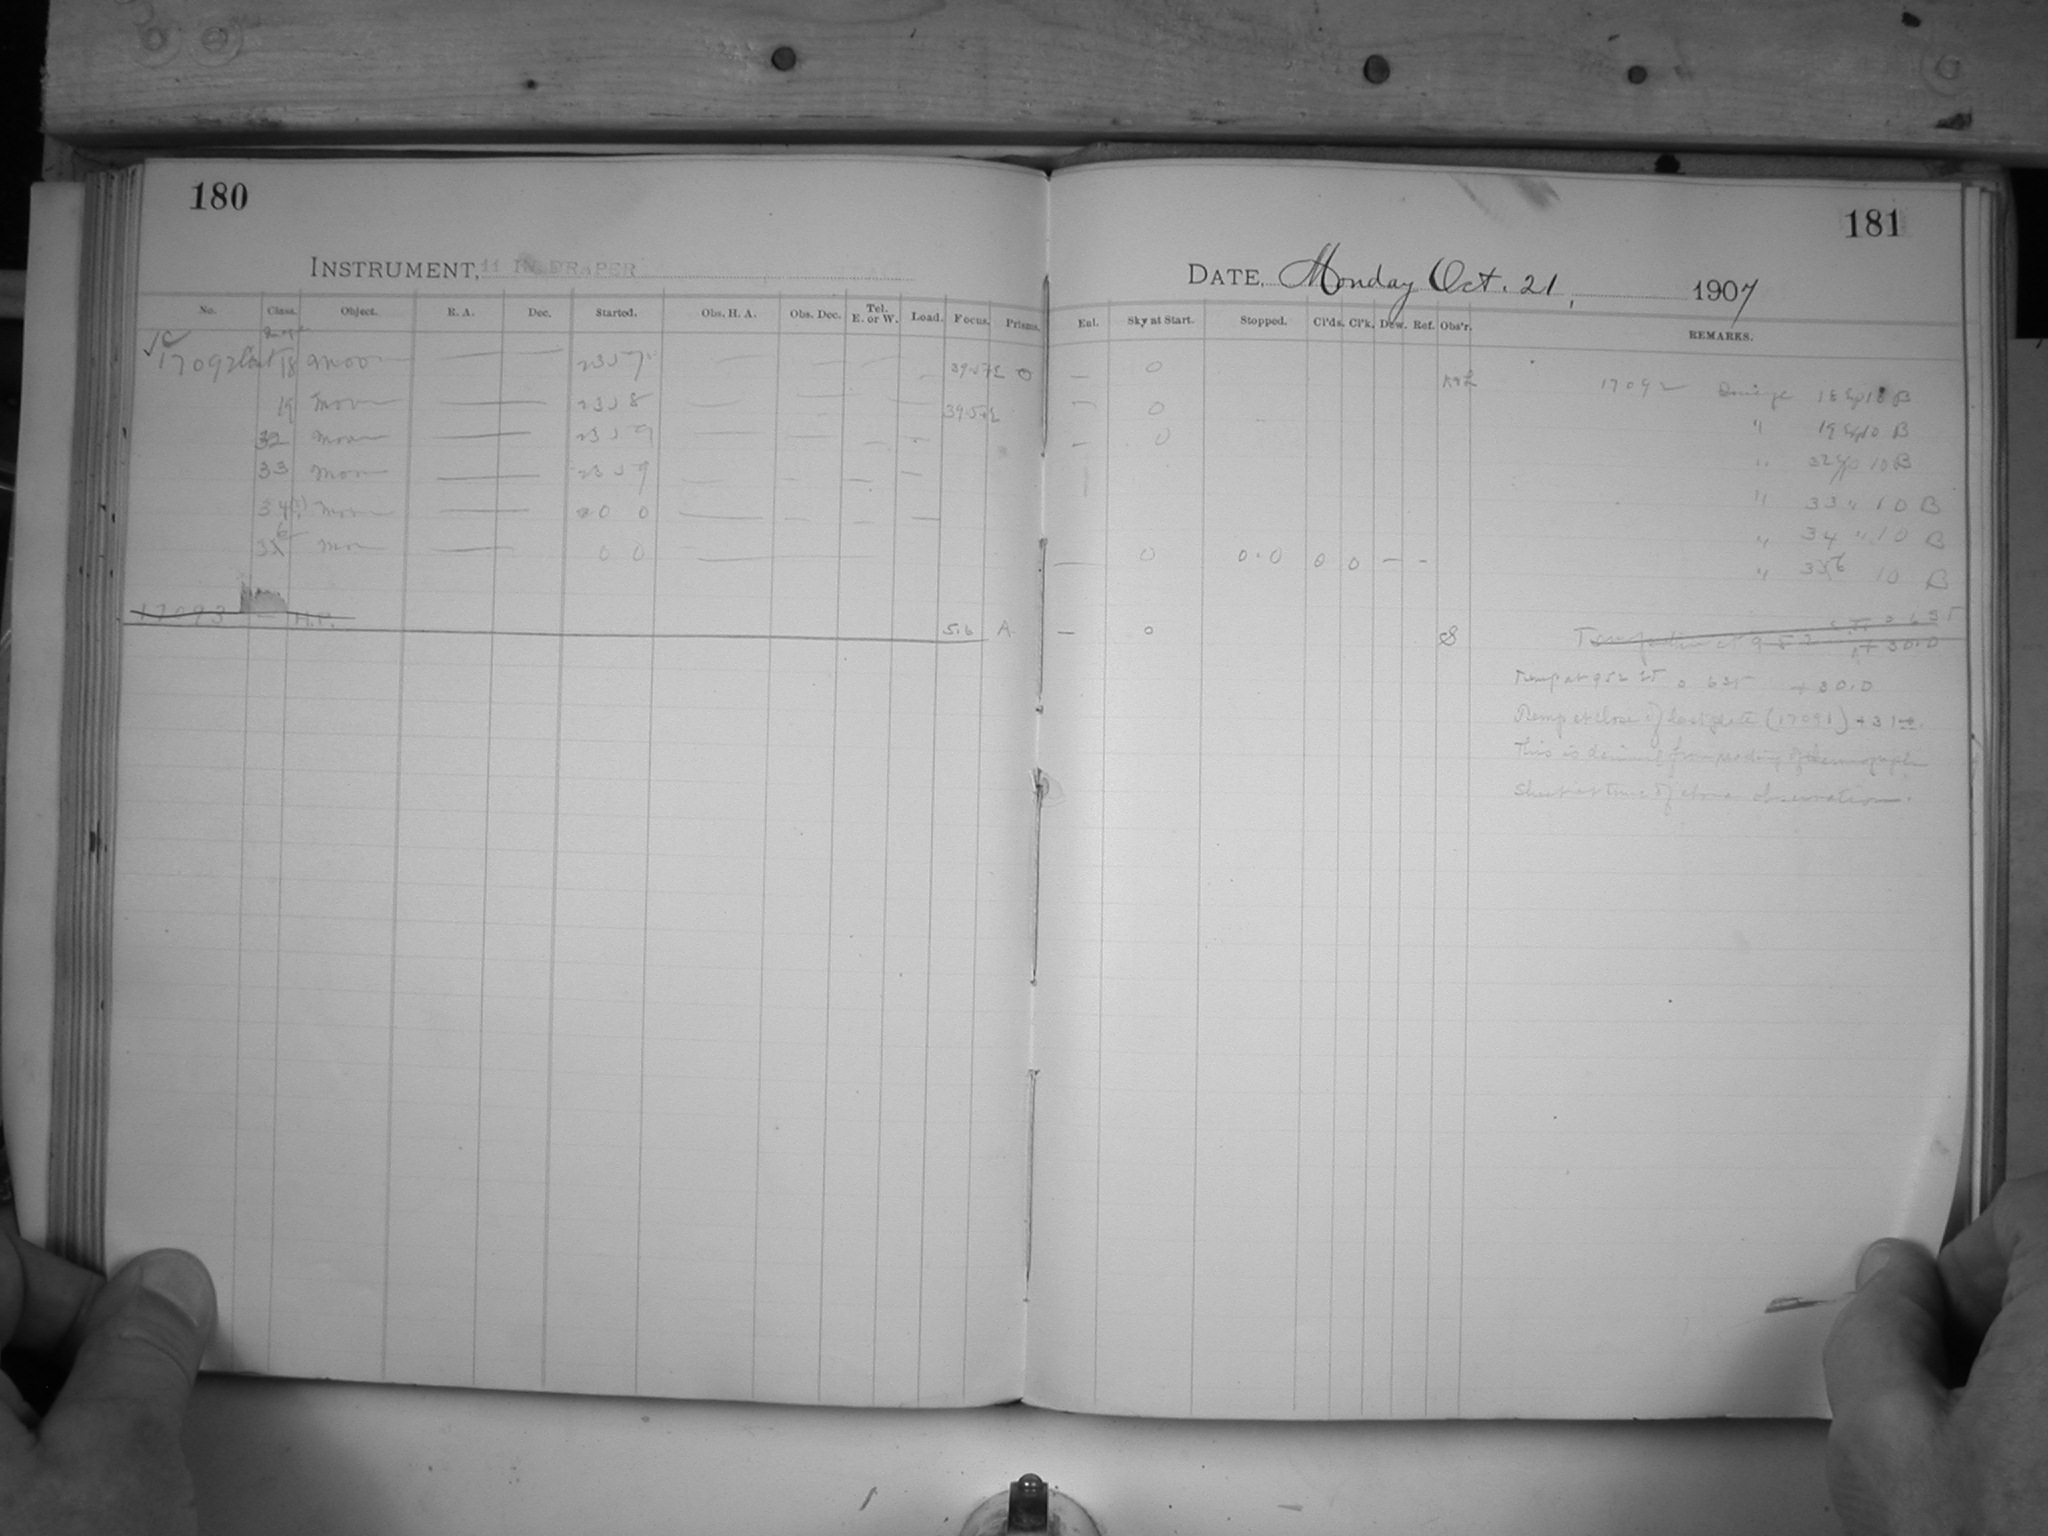 180
INSTRUMENT, 11 IN. DRAPER
No. Class. Object. R. A. Dec. Started. Obs. H. A. Obs. Dec. Tel. E. or W. Load. Focus. Prisms.
17092 18 Moon — — 23 57 O
19 Moon — — 23 58
32 Moon — — 23 59
33 Moon — — 23 59
34 Moon — — 0 0
0 0
17093 — 5.6 A
181
DATE, Monday Oct. 21, 1907
Enl. Sky at Start. Stopped. Cl'ds. Cl'k. Dew. Ref. Obs'r. REMARKS.
— 0 17092 18 B
0 " 19 10 B
— 0 " 32 10 B
" 33 " 10 B
" 34 " 10 B
— 0 0.0 0 0 — - " 10 B
— 0 S
+ 30.0
Temp at 9 52 25 + 30.0
Temp at close of last plate (17091) + 31
This is derived from reading of thermograph
Sheet at time of above observation.